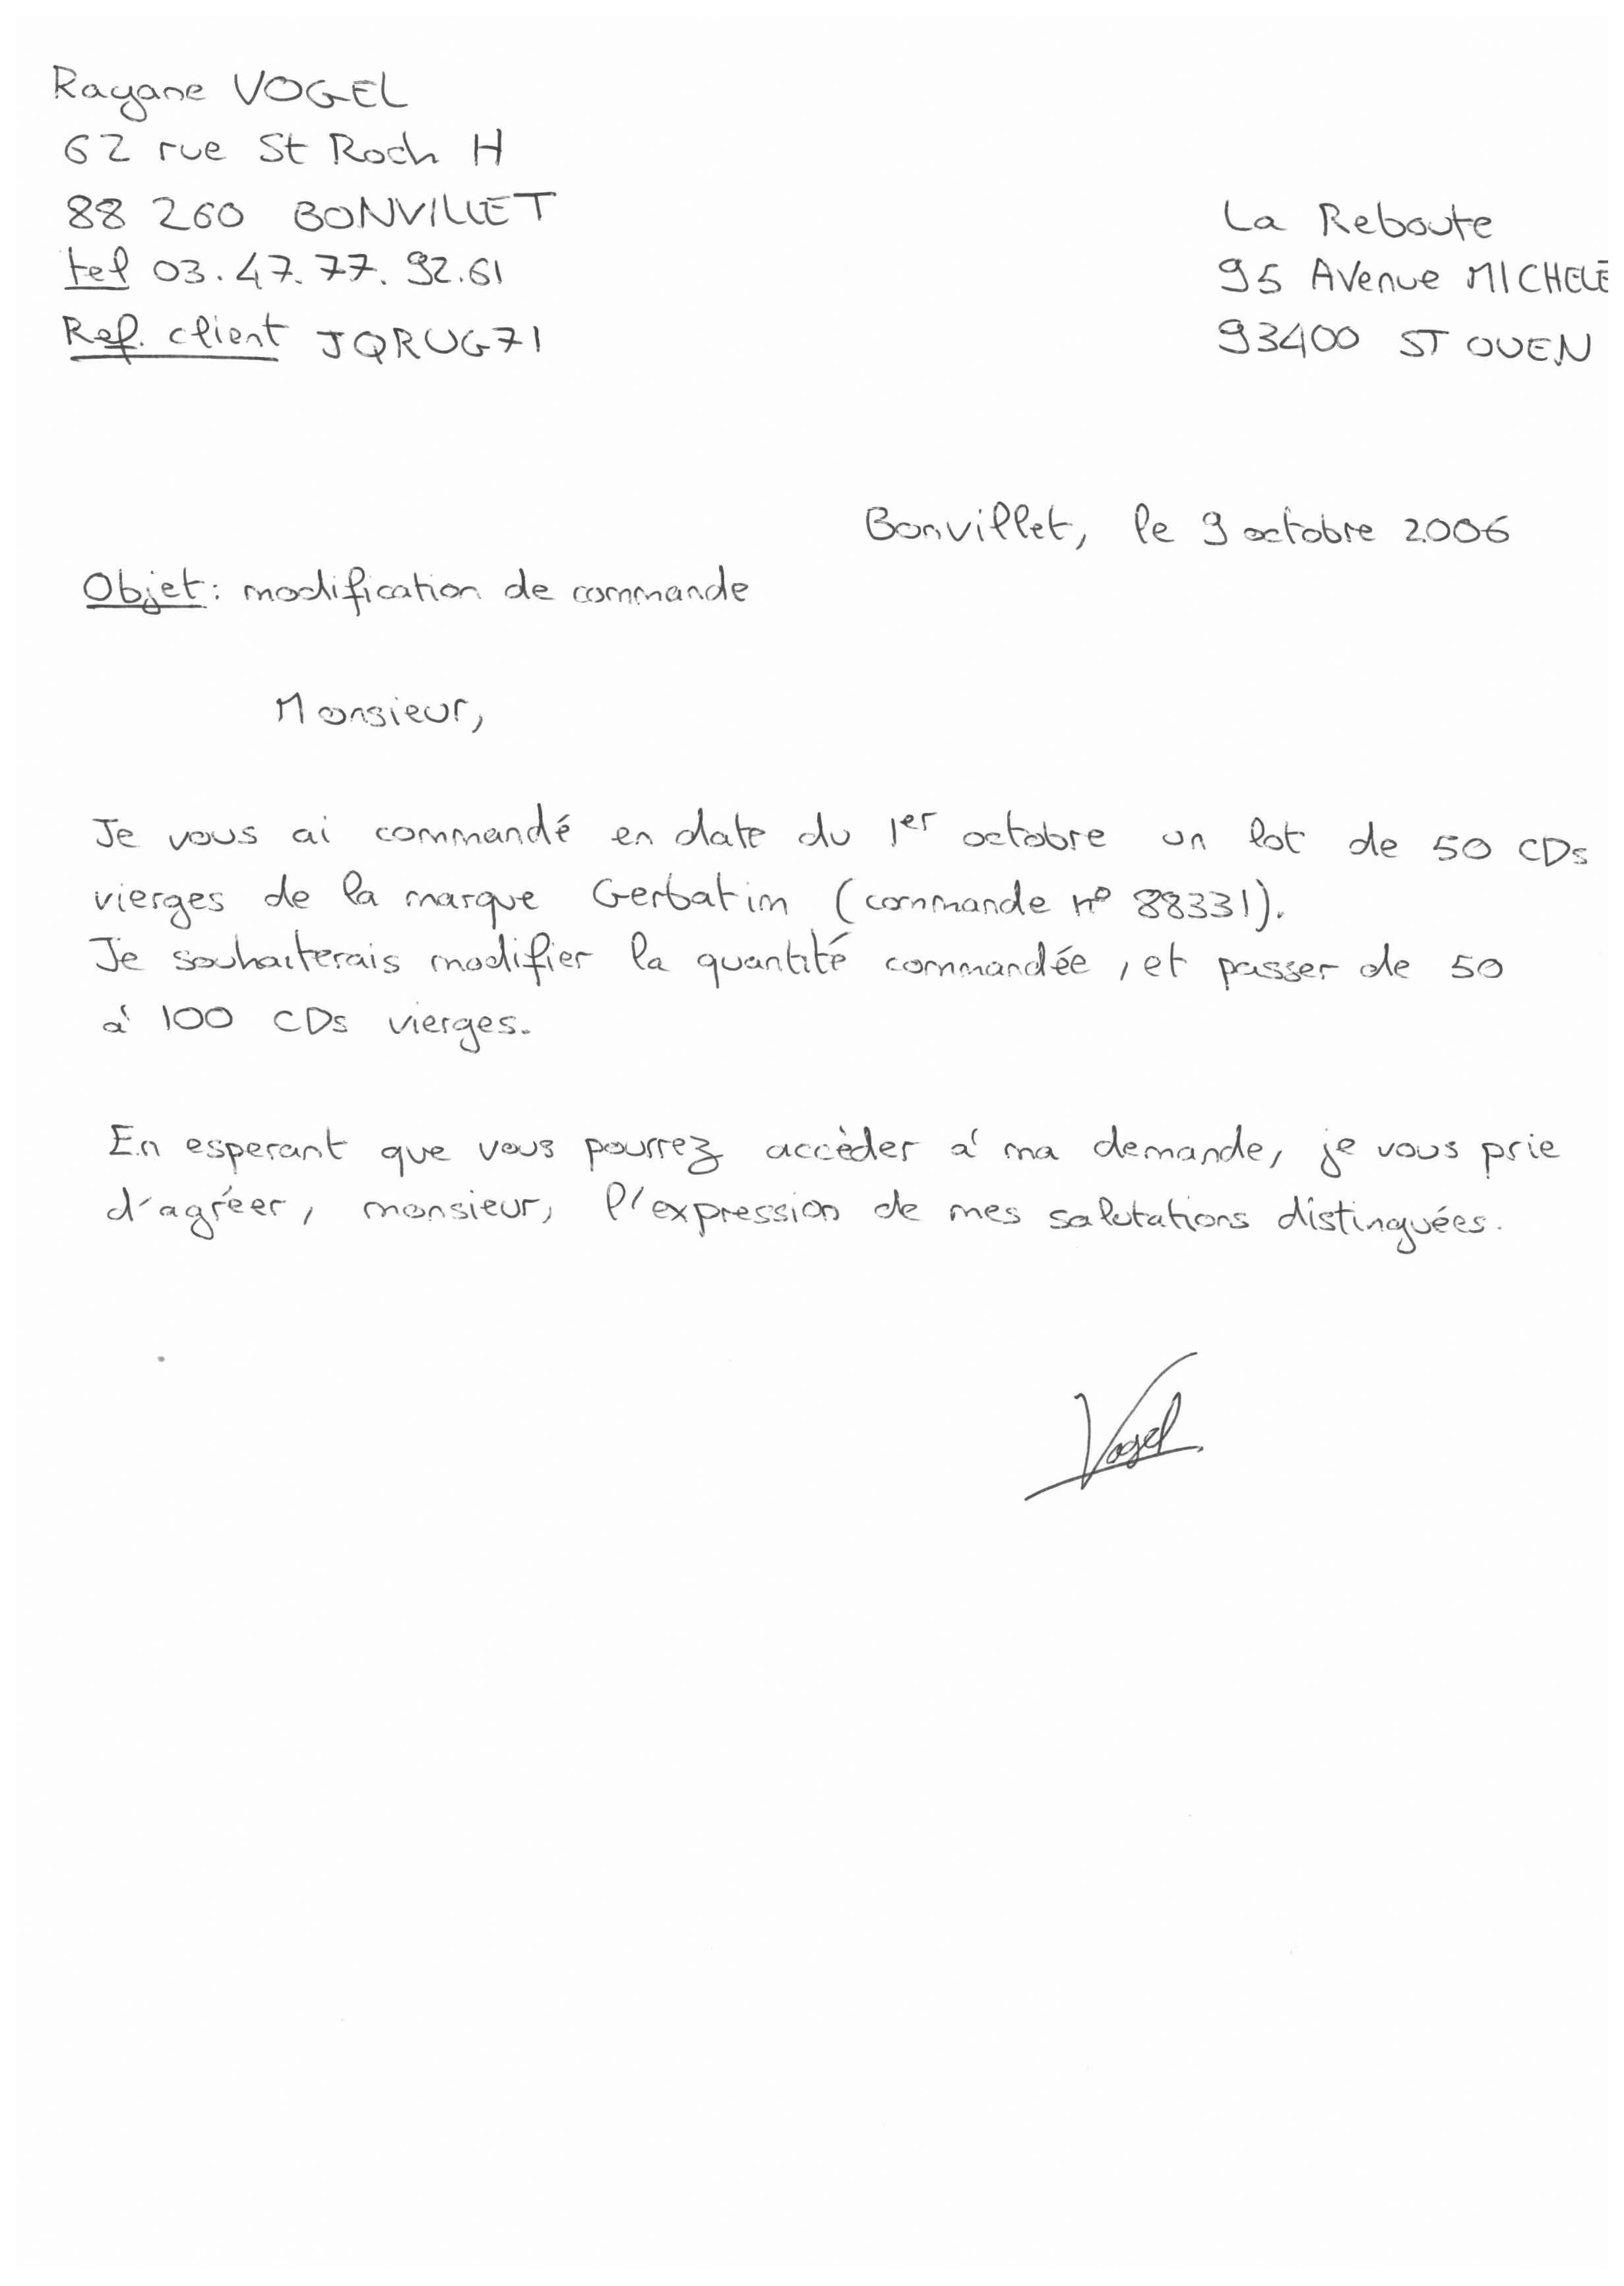 Rayane VOGEL
62 rue St Roch H
88 260 BONVILLET
tel 03.47.77.92.61
Ref. client JQRUG71
La Reboute
95 Avenue MICHELE
93400 ST OUEN
Bonvillet, le 9 octobre 2006
Objet: modification de commande
Monsieur,
Je vous ai commandé en date du 1er octobre un lot de 50 CDs
vierges de la marque Gerbatim (commande n° 88331).
Je souhaiterais modifier la quantité commandée, et passer de 50
à 100 CDs vierges.
En esperant que vous pourrez accèder à ma demande, je vous prie
d'agréer, monsieur, l'expression de mes salutations distinguées.
Vogel